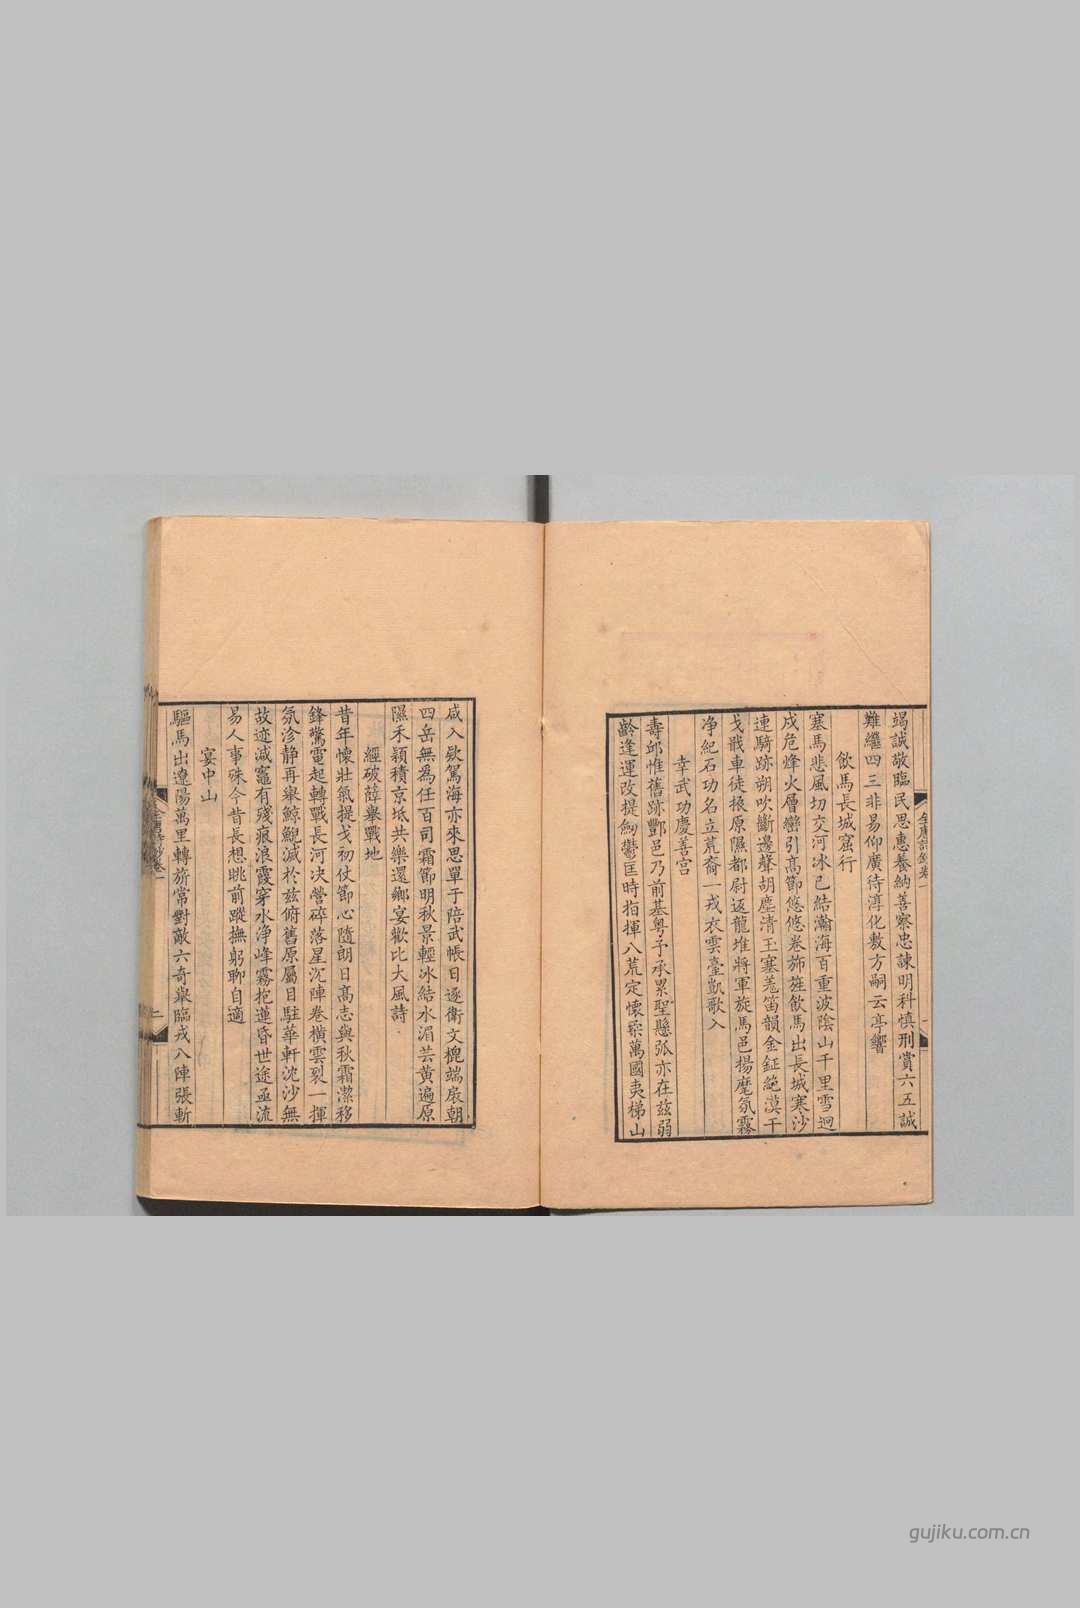 竭誠敬臨民思惠養納善察忠諫明科慎刑賞六五誠
難繼四三非易仰廣待淳化敷方嗣云亭響
飲馬長城窟行
塞馬悲風切交河冰已結瀚海百重波陰山千里雪迥
戍危烽火層巒引高節悠悠卷斾旌飲馬出長城寒沙
連騎跡朔吹斷邊聲胡塵清玉塞羗笛韻金鉦絶漠干
戈戢車徒振原隰都尉返龍堆將軍旋馬邑揚麾氛霧
净紀石功名立荒裔一戎衣雲臺凱歌入
幸武功慶善宫
壽邱惟舊跡酆邑乃前基粤予承累聖懸弧亦在兹弱
齡逢運改提劒鬱匡時指揮八荒定懷柔萬國夷梯山
咸入欵駕海亦來思單于陪武帳日逐衛文㮰端扆朝
四岳無為任百司霜節明秋景輕冰結水湄芸黄遍原
隰禾頴積京坻共樂還鄉宴歡比大風詩
經破薛舉戰地
昔年懷壯氣提戈初仗節心隨朗日高志與秋霜潔移
鋒驚電起轉戰長河决營碎落星沉陣卷横雲裂一揮
氛沴静再舉鯨鯢滅於兹俯舊原屬目駐華軒沈沙無
故迹减竈有殘痕浪霞穿水净峰霧抱蓮昏世途亟流
易人事殊今昔長想眺前蹤撫躬聊自適
宴中山
驅馬出遼陽萬里轉旂常對敵六奇舉臨戎八陣張斬
gujiku.com.cn